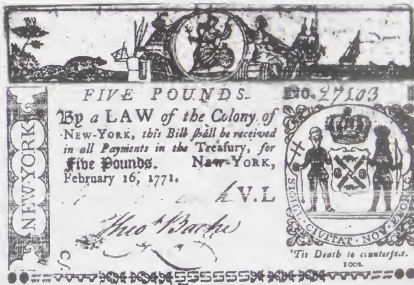 FIVE POUNDS.
No. 27103
By a LAW of the Colony of
NEW-YORK, this Bill shall be received
in all Payments in the Treasury, for
Five Pounds. New-York,
February 16, 1771.
V.L
Theo Bache
NEW-YORK
SIGILL CIVITAT NOV
'Tis Death to counterfeit.
SSSSSS